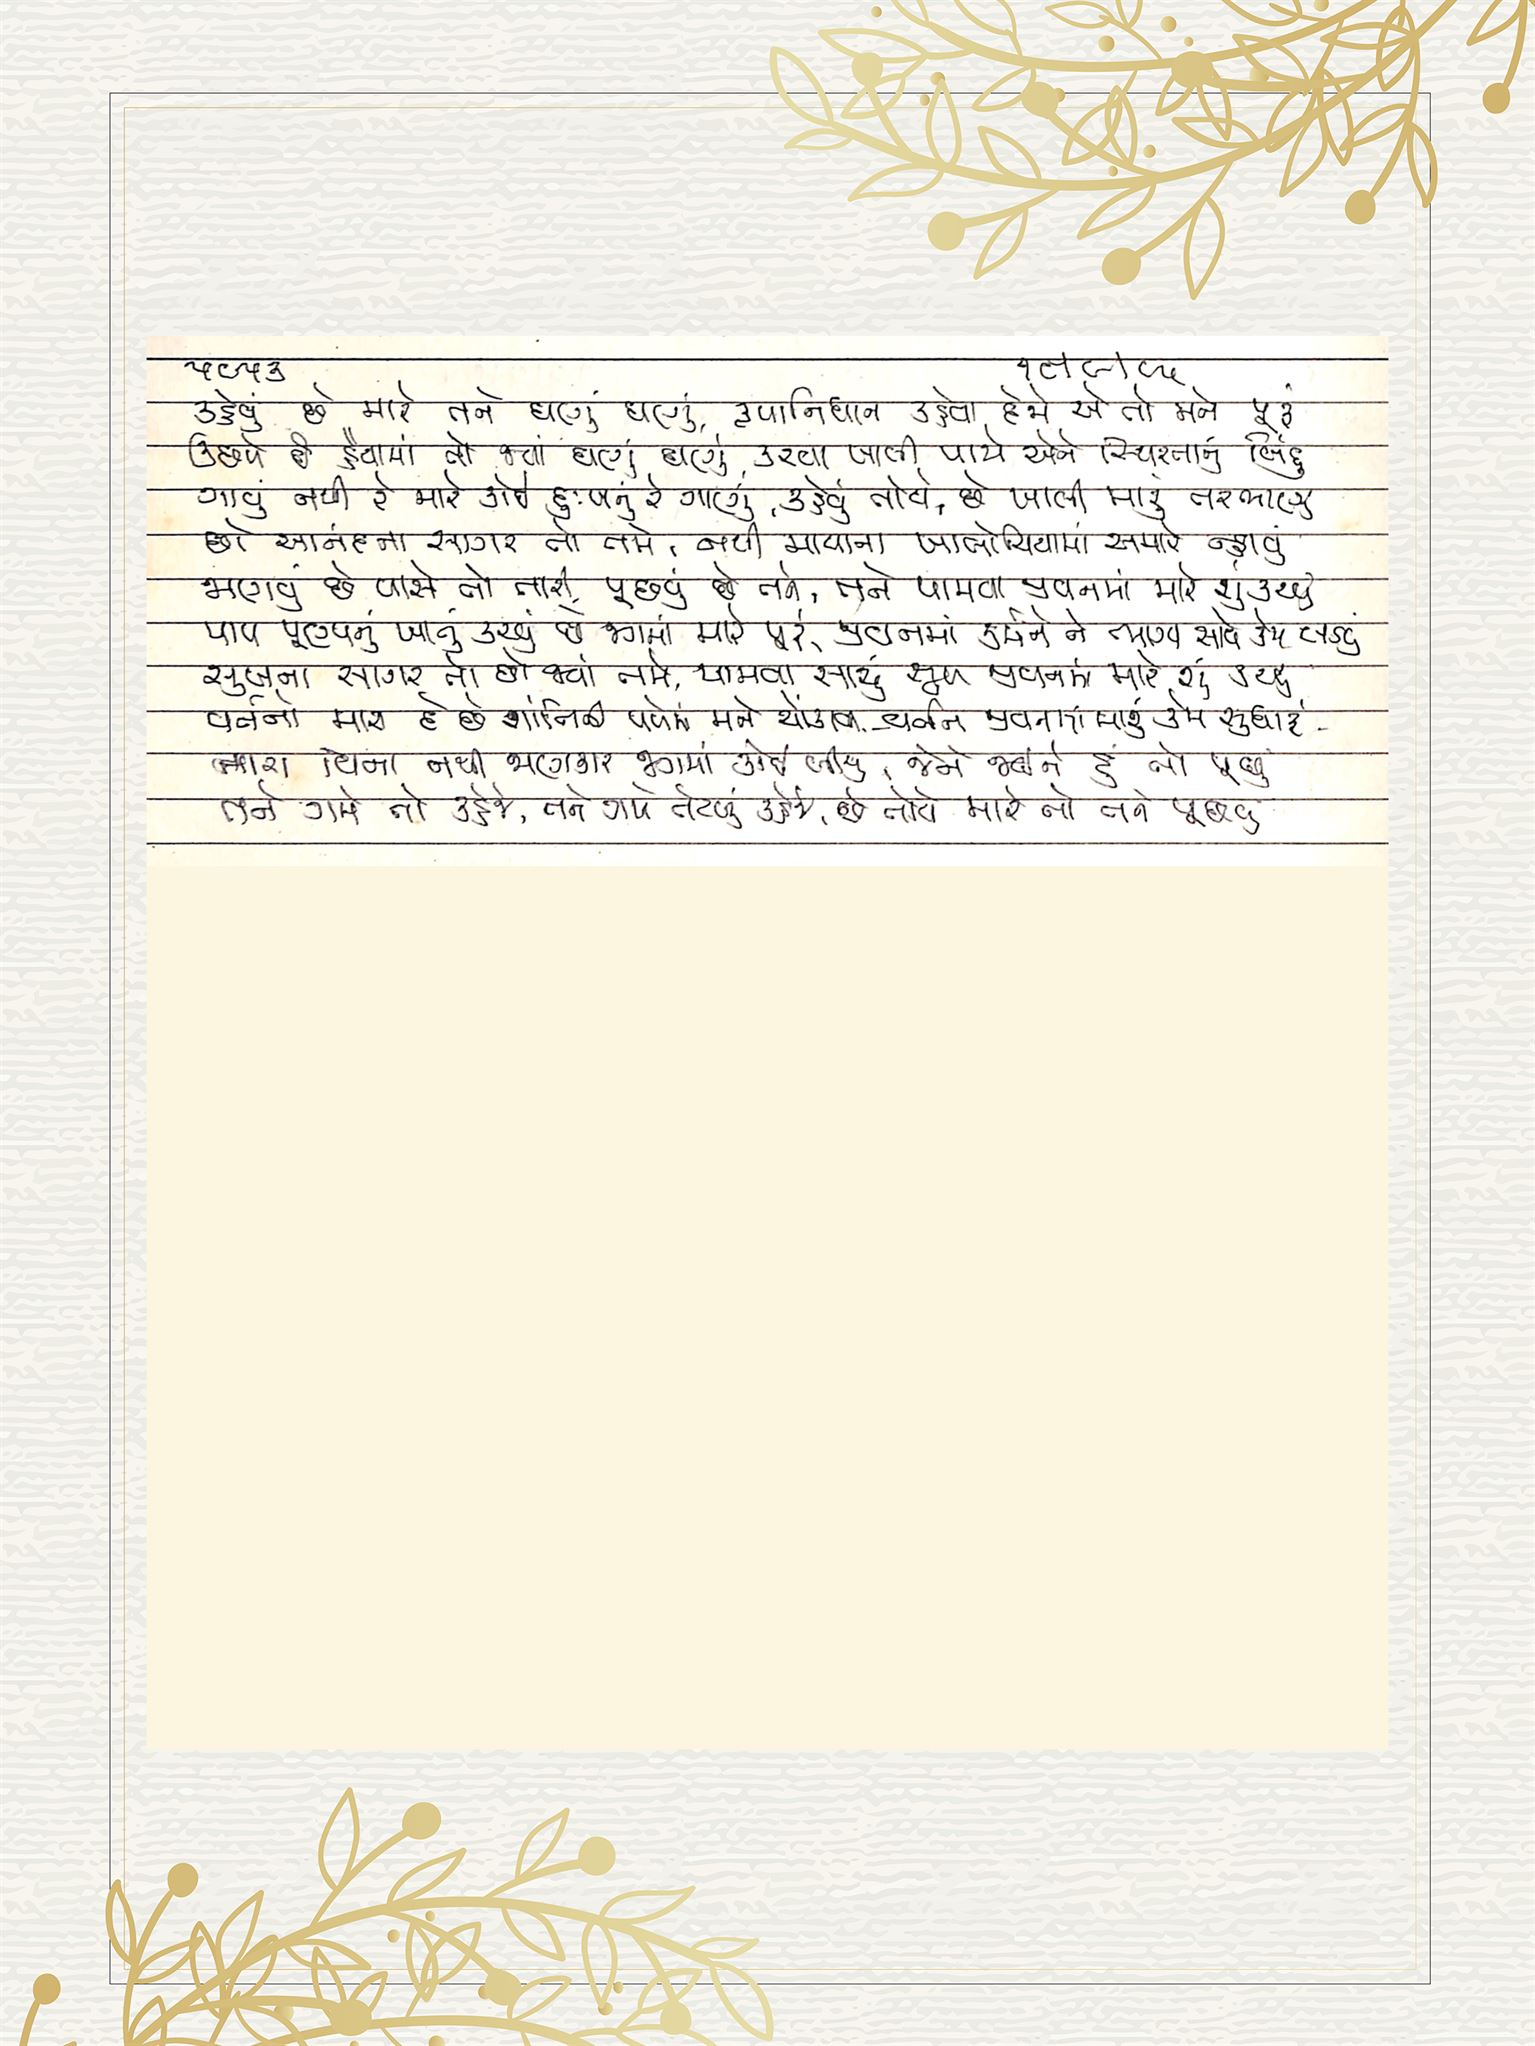 ૫૮૫૩ ૧૯૯૫
કહેવું છે મારે તને ઘણું ઘણું, કૃપાનિધાન કહેવા દેજે એ તો મને પૂરૂં
ઉછળે છે હૈયામાં તો જ્યાં ઘણું ઘણું, કરવા ખાલી પાયે એને સ્થિરતાનું બિંદુ
ગાવું નથી રે મારે કોઈ દુઃખનું રે ગાણું, કહેવું તોયે, છે ખાલી મારું
છો આનંદના સાગર તો તમે, નથી માયાના ખાબોચિયામાં અમારે ન્હાવું
ભણવું છે પાસે તો તારી, પૂછવું છે તને, તને પામવા જીવનમાં મારે શું કરવું
પાપ પુણ્યનું ખાતું કરવું છે જગમાં મારે પૂરું, જીવનમાં કર્મને ને ભાગ્ય સાથે કેમ લડવું
સુખના સાગર તો છો જ્યાં તમે, પામવા સાચું સુખ જીવનમાં મારે શું કરવું
વર્તનો મારા દે છે શાંતિની પળોમાં મને વર્તન જીવનમાં મારું કેમ સુધારું
તારા વિના નથી જાણકાર જગમાં કોઈ બીજું, જેને જઈને હું તો પૂછું
તને ગમે તો કહેજે, તને ગમે તેટલું કહેજે, છે તોયે મારે તો તને પૂછવું